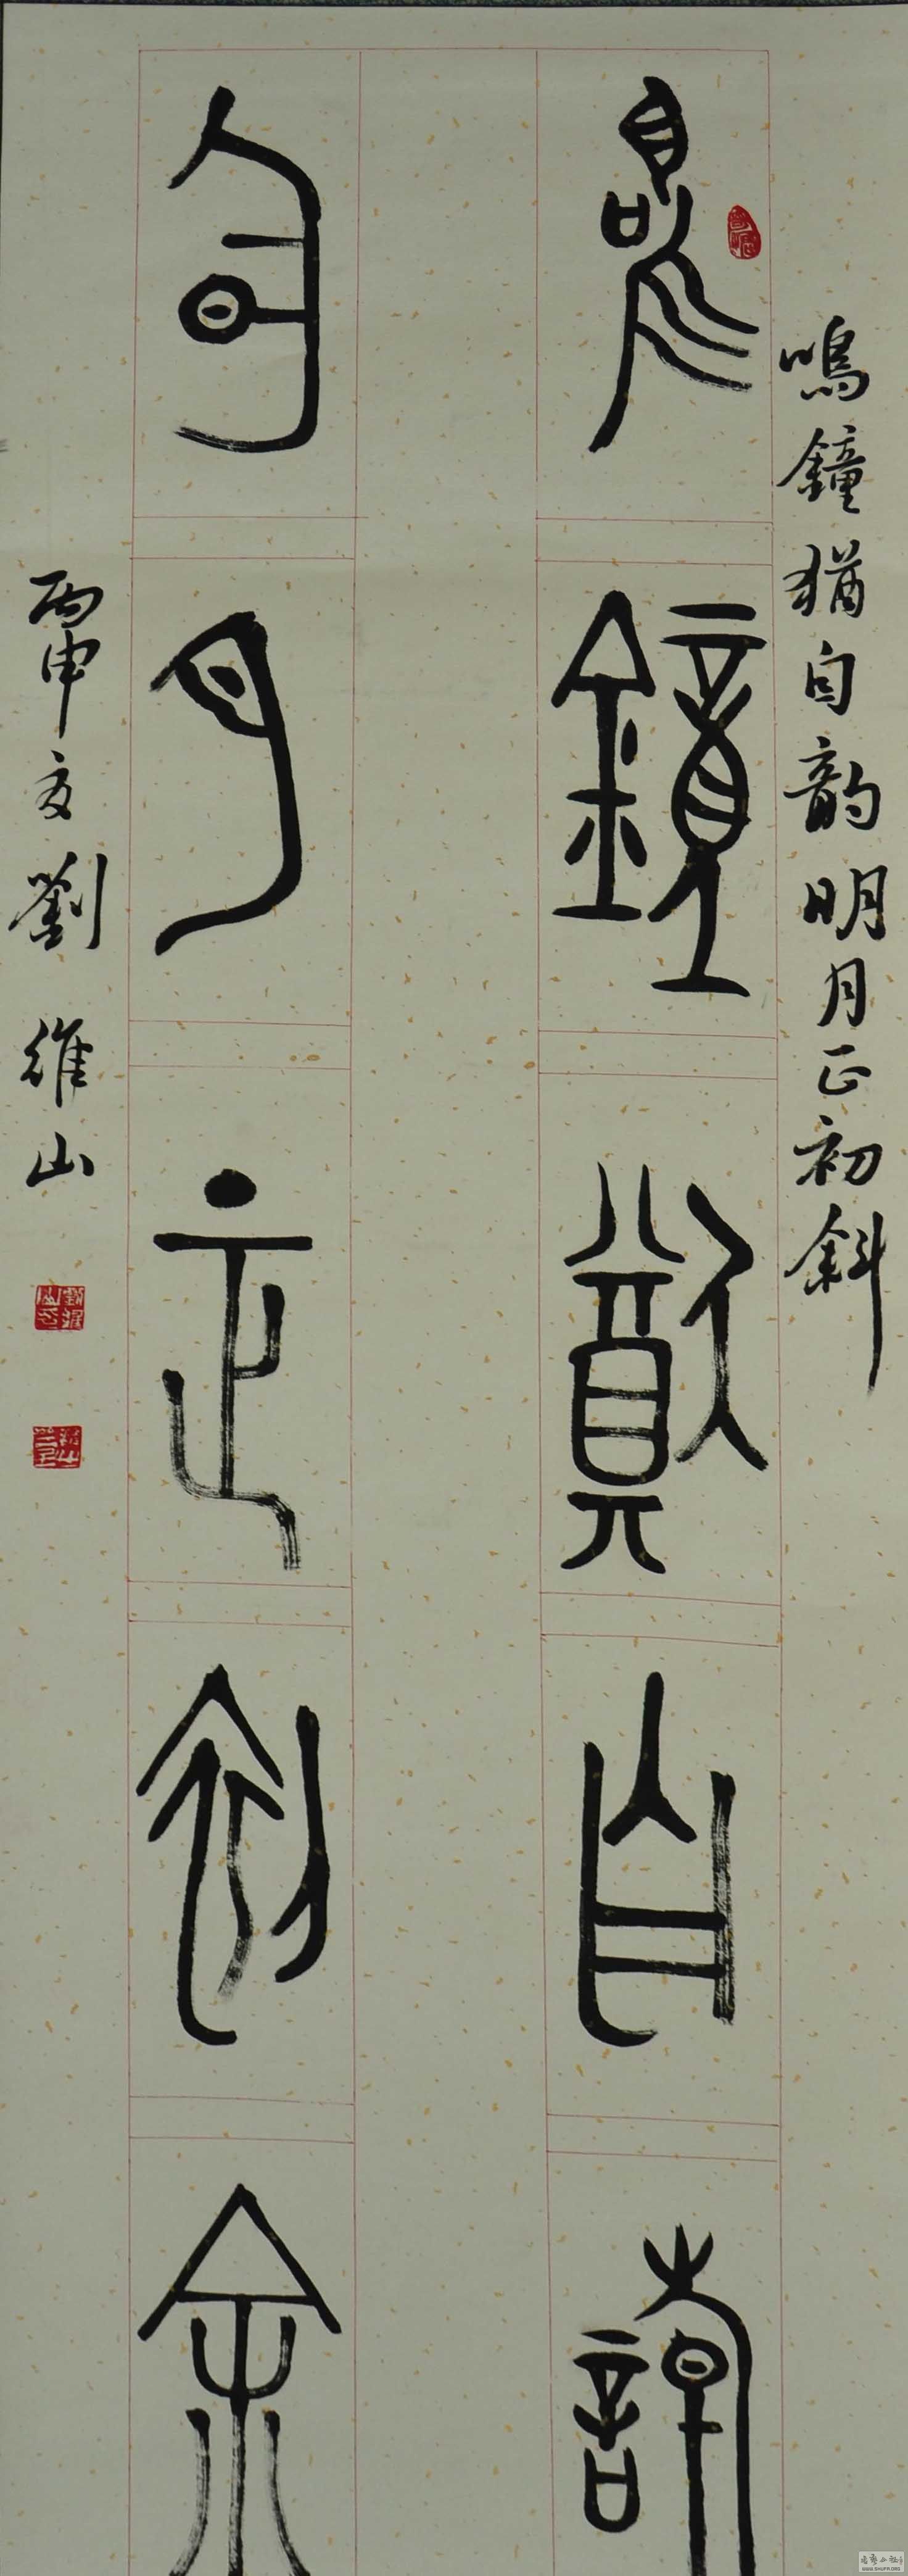 鳴鐘猶自韻明月正初斜
鳴鐘猷自韻
明月正初余
丙申夏劉維山
WWW.SHUFA.ORG